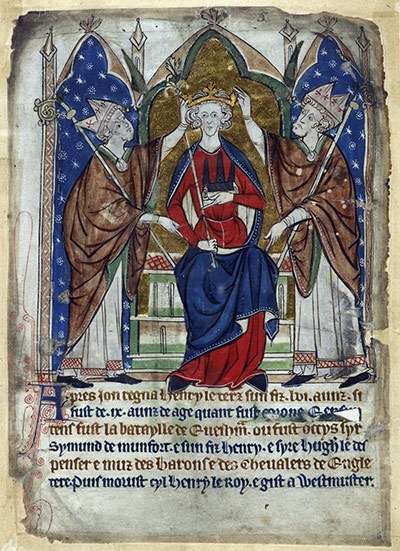 Apres Jon regna Henry le terz sun fiz. lvi. aunz. si
fust de .ix. aunz de age quant fust
tens fust la bataylle de ou fust occys syr
Symund de munfort. e sun fiz Henry. e syre Hugh le des
penser e muz des Barons e des Chevalers de Engle
tere. Puis morust cyl Henry le Roy. e gist a Westmuster.